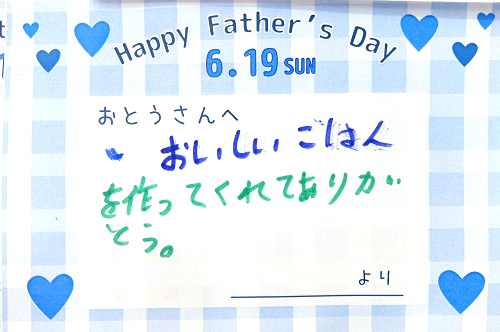 Happy Father's Day
6.19 SUN
おとうさんへ
おいしいごはん
を作ってくれてありが
とう。
より